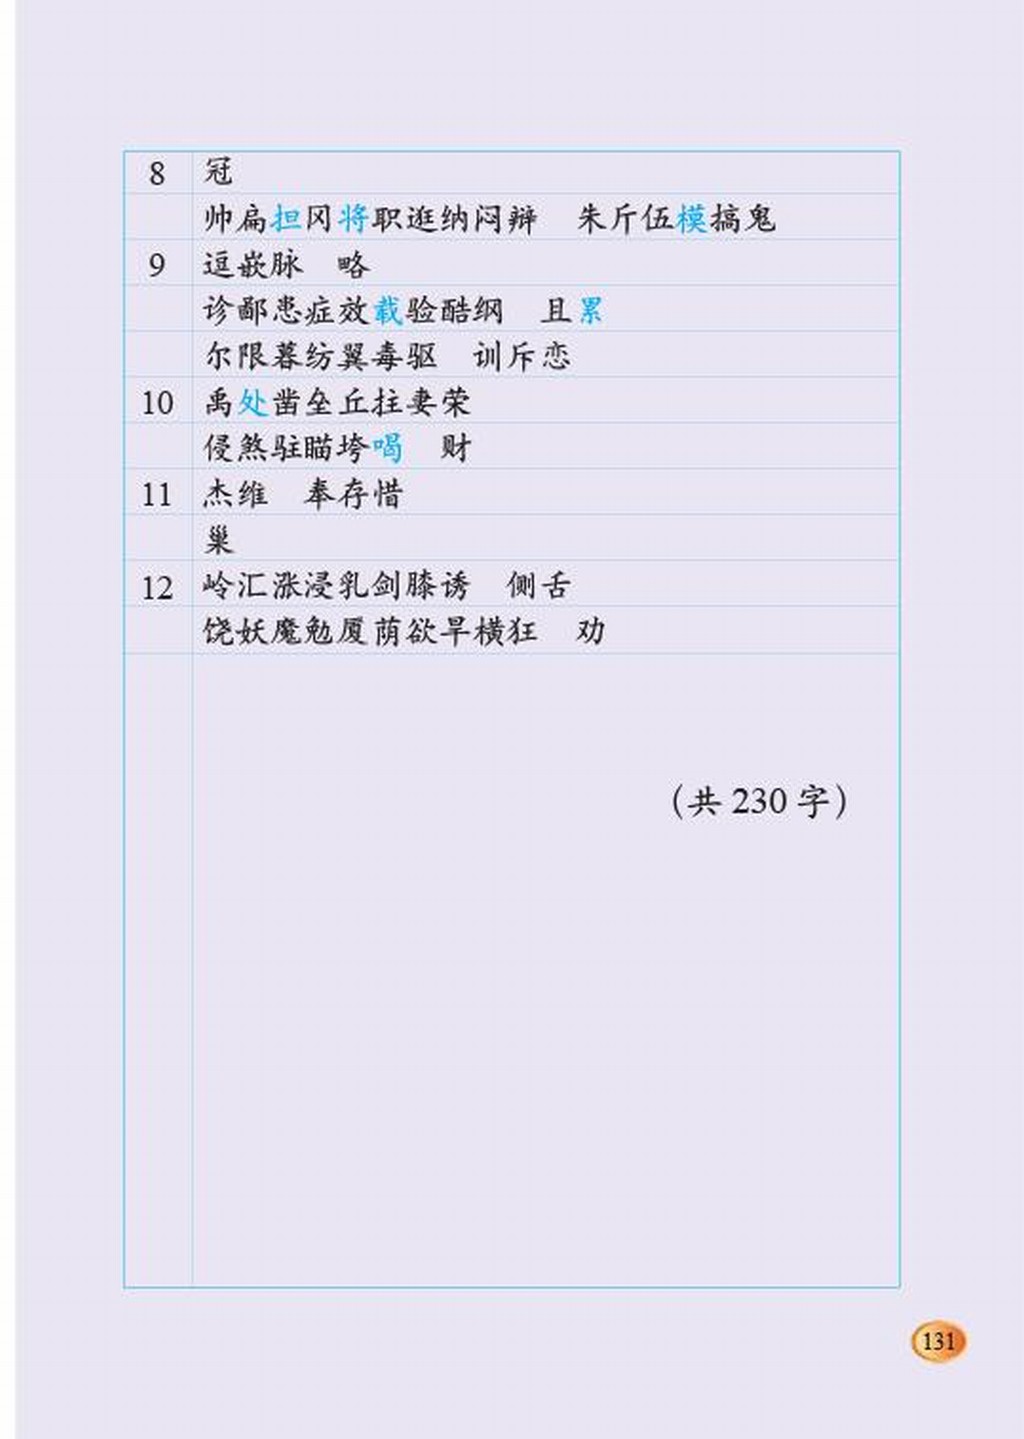 8 冠
帅扁担冈将职逛纳闷辩 朱斤伍模搞鬼
9 逗嵌脉 略
诊鄙患症效载验酷纲 且累
尔限暮纺翼毒驱 训斥恋
10 禹处凿垒丘拄妻荣
侵煞驻瞄垮喝 财
11 杰维 奉存惜
巢
12 岭汇涨浸乳剑膝诱 侧舌
饶妖魔勉厦荫欲旱横狂 劝
（共 230 字）
131